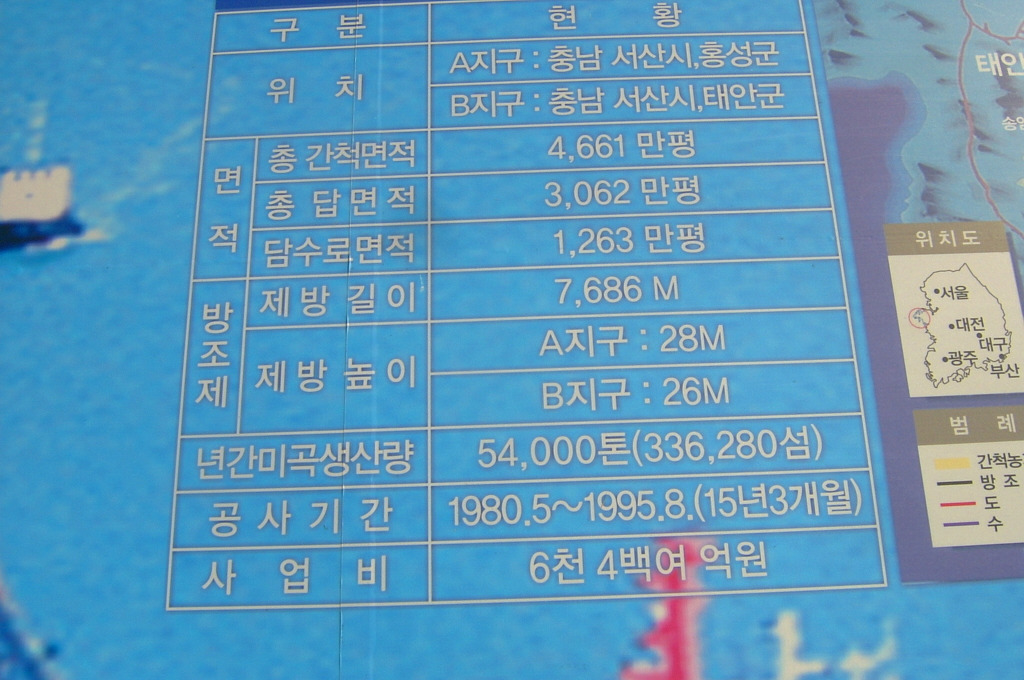 구 분 현 황
위 치 A지구 : 충남 서산시,홍성군
B지구 : 충남 서산시,태안군
면적 총 간척면적 4,661 만평
총 답 면 적 3,062 만평
담수로면적 1,263 만평
방조제 제 방 길 이 7,686 M
제 방 높 이 A지구 : 28M
B지구 : 26M
년간미곡생산량 54,000톤(336,280섬)
공 사 기 간 1980.5~1995.8.(15년3개월)
사 업 비 6천 4백여 억원
태안
위치도
서울
대전
대구
광주
부산
범 례
간척농
방 조
도
수